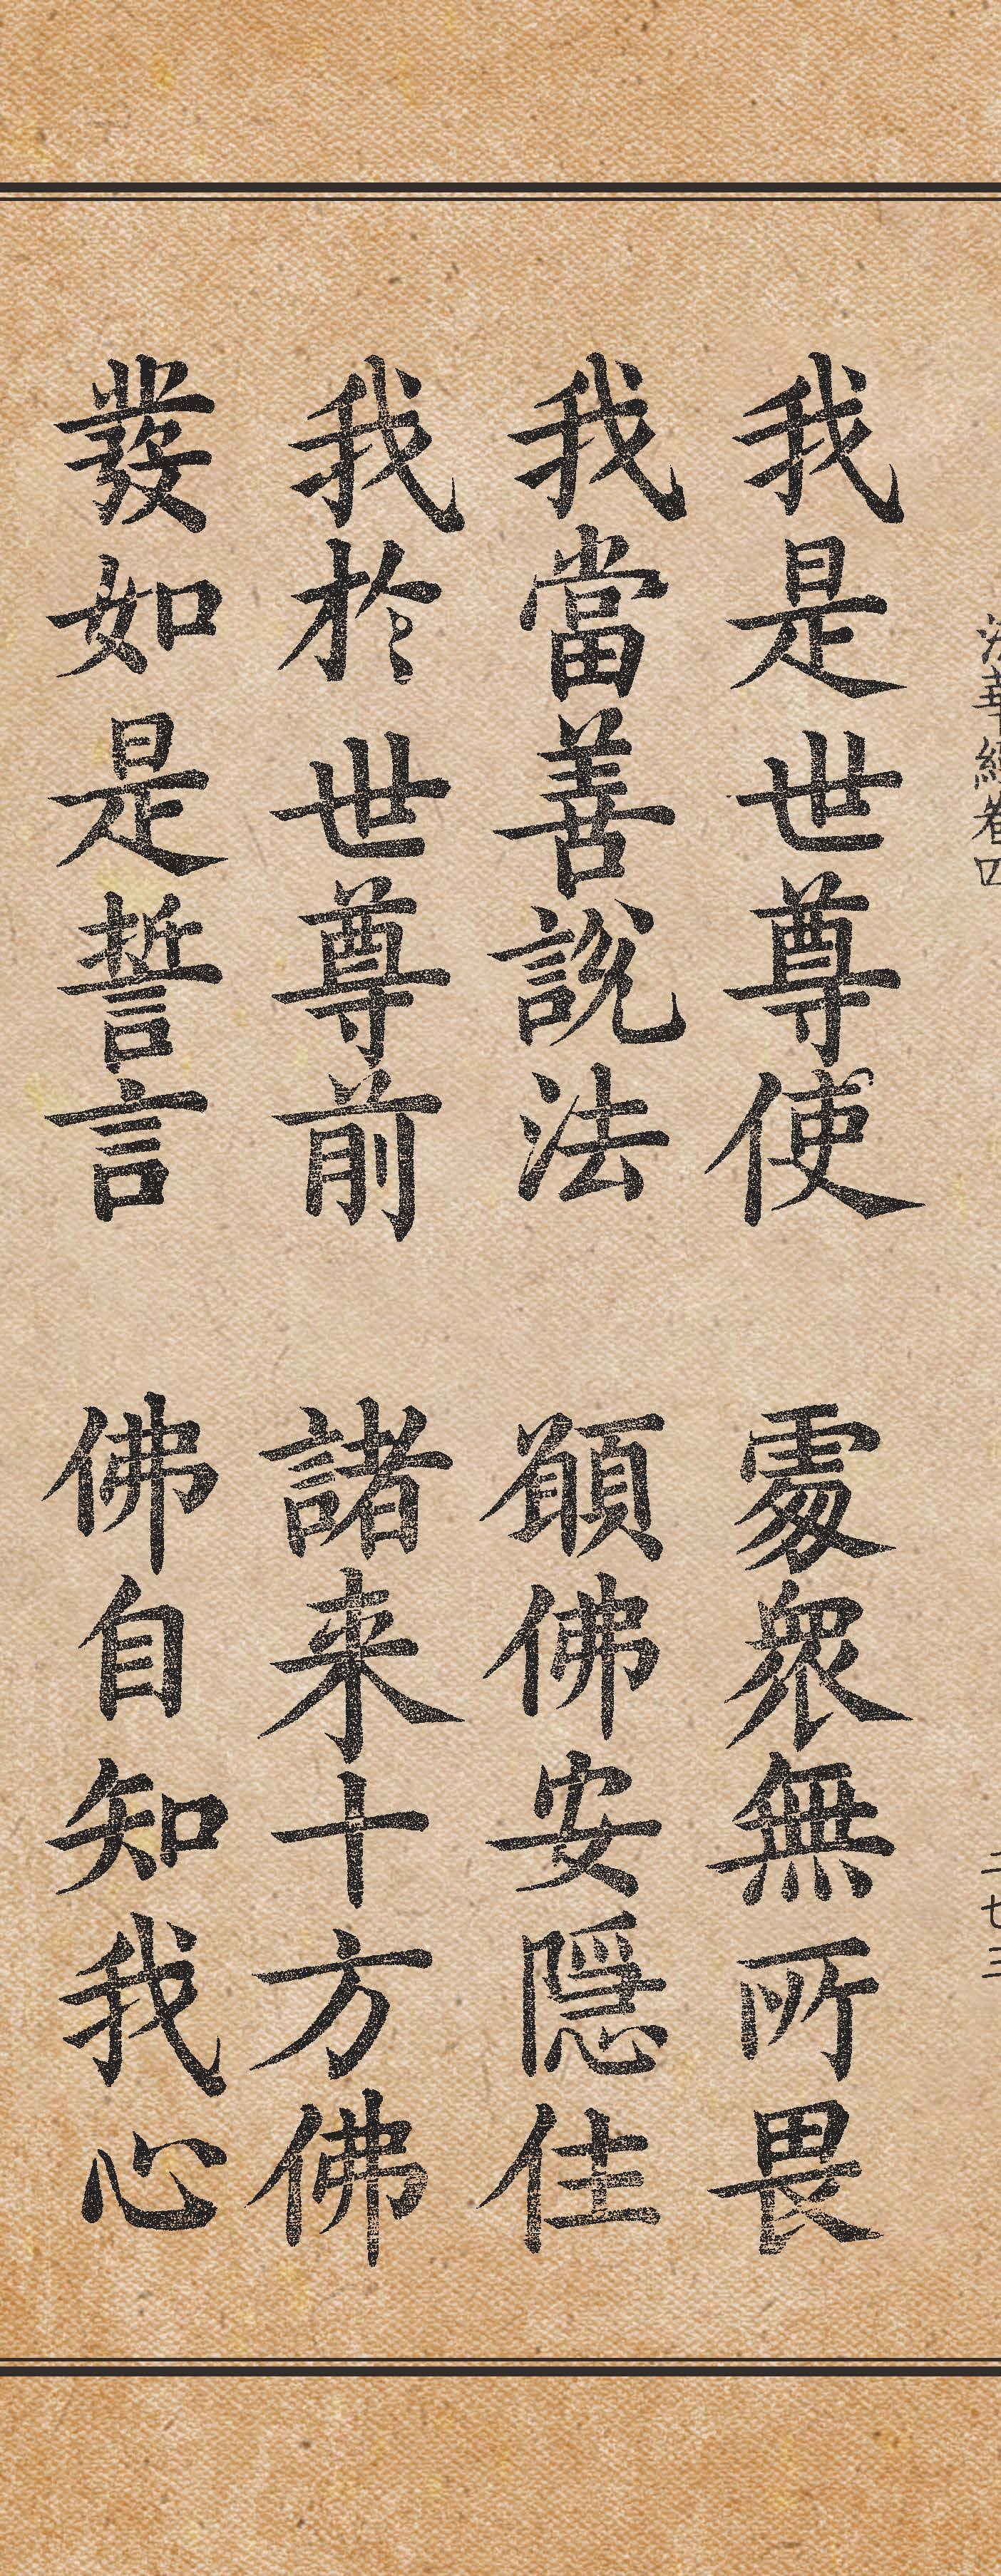 法華經卷四
我是世尊使 處眾無所畏
我當善說法 願佛安隱佳
我於世尊前 諸来十方佛
發如是誓言 佛自知我心